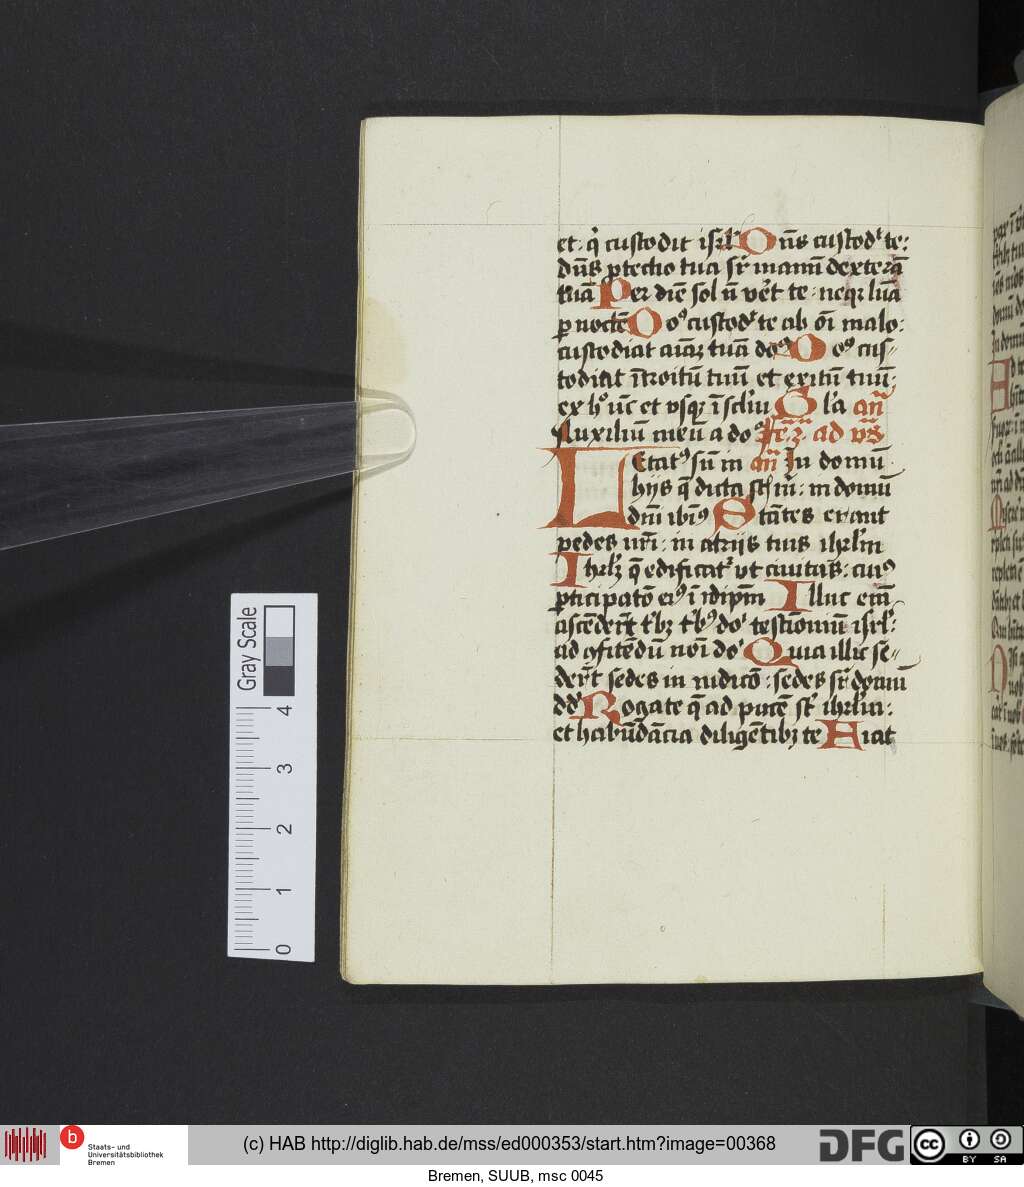 et. q̉ custodit isrl̓ Dn̄s custod᷑ te:
dn̄s ꝓtectio tua sr̄ manū dexterā
tuā Per diē sol n̄ vr̄et te: neqꝫ lūā
ꝑ noctē Do᷒ custod᷑ te ab oī malo:
custodiat aīaꝫ tuā do᷒ Do᷒ cus-
todiat ītroitū tuū et exitū tuū:
ex hͦ ūc et vsqꝫ ī sclm̄ Gl̓a an̄
Auxiliū meū a do᷒ Fe. 2. ad vs̄
LEtat᷒ sū in an̄ In domū
hijs q̄ dicta st̄ m̄: in domū
dm̄ ibim᷒ Stātes erant
pedes nr̄i: in atrijs tuis ihrl̓m
Ihrl̓ꝫ q̄ edificat᷑ vt ciuitas: cui᷒
ꝑticipatō ei᷒ ī idip̄m Illuc em̄
ascēderūt t̓bꝫ t̓b᷒ do᷑ testīoniū isrl̓:
ad ꝯfitēdū noī do᷑ Quia illic se-
derūt sedes in iudicō: sedes sr̄ domū
dd̄ Rogate q̄ ad pacē st̄ ihrl̓m:
et habūdācia diligētibꝫ te Fiat
Gray Scale
4
3
2
1
0
b Staats- und
Universitätsbibliothek
Bremen
(c) HAB http://diglib.hab.de/mss/ed000353/start.htm?image=00368
DFG
cc BY SA
Bremen, SUUB, msc 0045